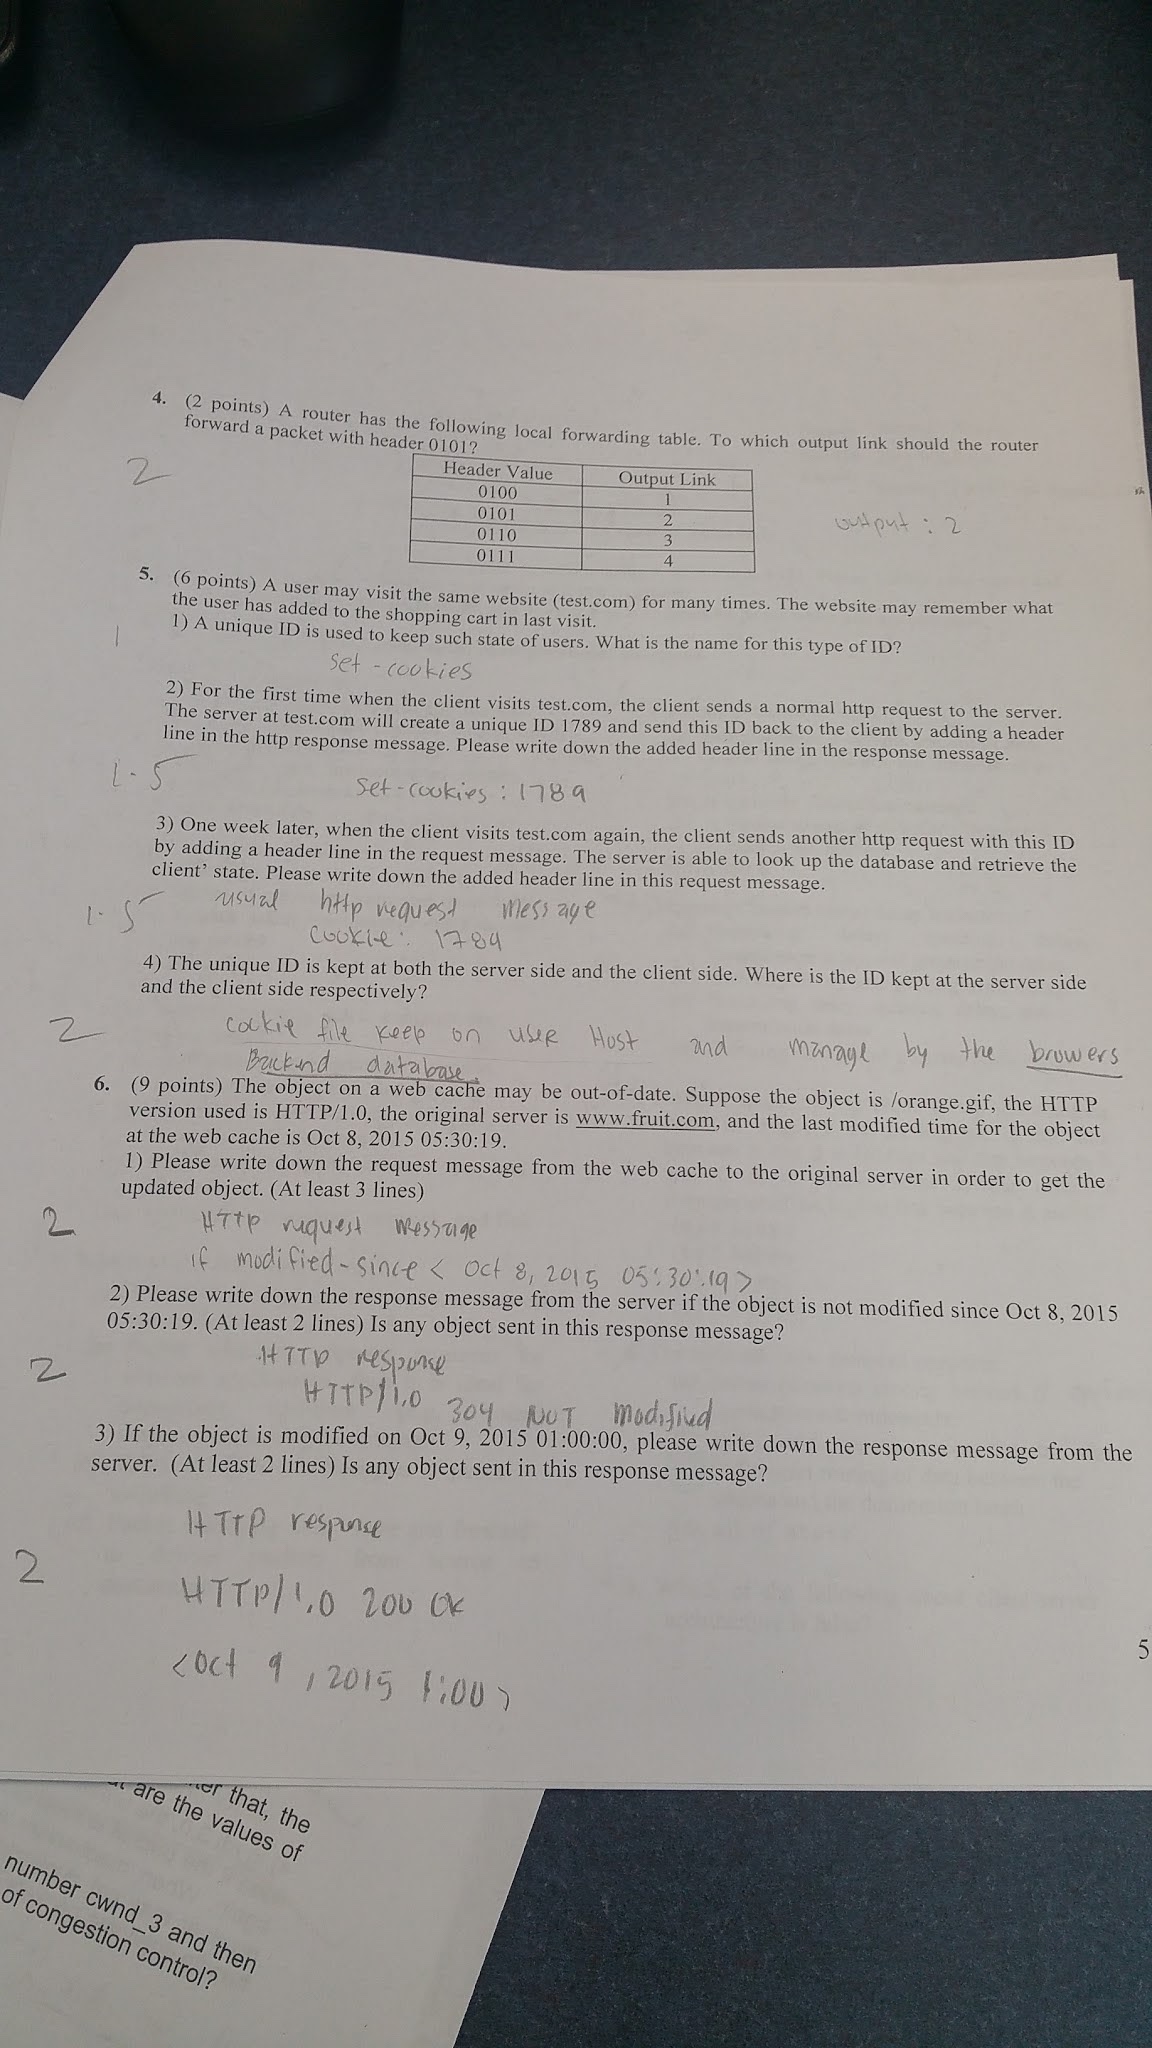 4. (2 points) A router has the following local forwarding table. To which output link should the router
forward a packet with header 0101?
2
Header Value Output Link
0100 1
0101 2
0110 3
0111 4
output : 2
5. (6 points) A user may visit the same website (test.com) for many times. The website may remember what
the user has added to the shopping cart in last visit.
1) A unique ID is used to keep such state of users. What is the name for this type of ID?
1
set - cookies
2) For the first time when the client visits test.com, the client sends a normal http request to the server.
The server at test.com will create a unique ID 1789 and send this ID back to the client by adding a header
line in the http response message. Please write down the added header line in the response message.
1.5
set-cookies : 1789
3) One week later, when the client visits test.com again, the client sends another http request with this ID
by adding a header line in the request message. The server is able to look up the database and retrieve the
client' state. Please write down the added header line in this request message.
1.5
usual http request message
cookie : 1789
4) The unique ID is kept at both the server side and the client side. Where is the ID kept at the server side
and the client side respectively?
2
cockie file keep on user Host and manage by the browers
Backend database.
6. (9 points) The object on a web cache may be out-of-date. Suppose the object is /orange.gif, the HTTP
version used is HTTP/1.0, the original server is www.fruit.com, and the last modified time for the object
at the web cache is Oct 8, 2015 05:30:19.
1) Please write down the request message from the web cache to the original server in order to get the
updated object. (At least 3 lines)
2
HTTP request message
if modified-since < Oct 8, 2015 05:30:19 >
2) Please write down the response message from the server if the object is not modified since Oct 8, 2015
05:30:19. (At least 2 lines) Is any object sent in this response message?
2
HTTP response
HTTP/1.0 304 NOT Modified
3) If the object is modified on Oct 9, 2015 01:00:00, please write down the response message from the
server. (At least 2 lines) Is any object sent in this response message?
HTTP response
2
HTTP/1.0 200 OK
<Oct 9, 2015 1:00>
5
that, the
are the values of
number cwnd_3 and then
of congestion control?